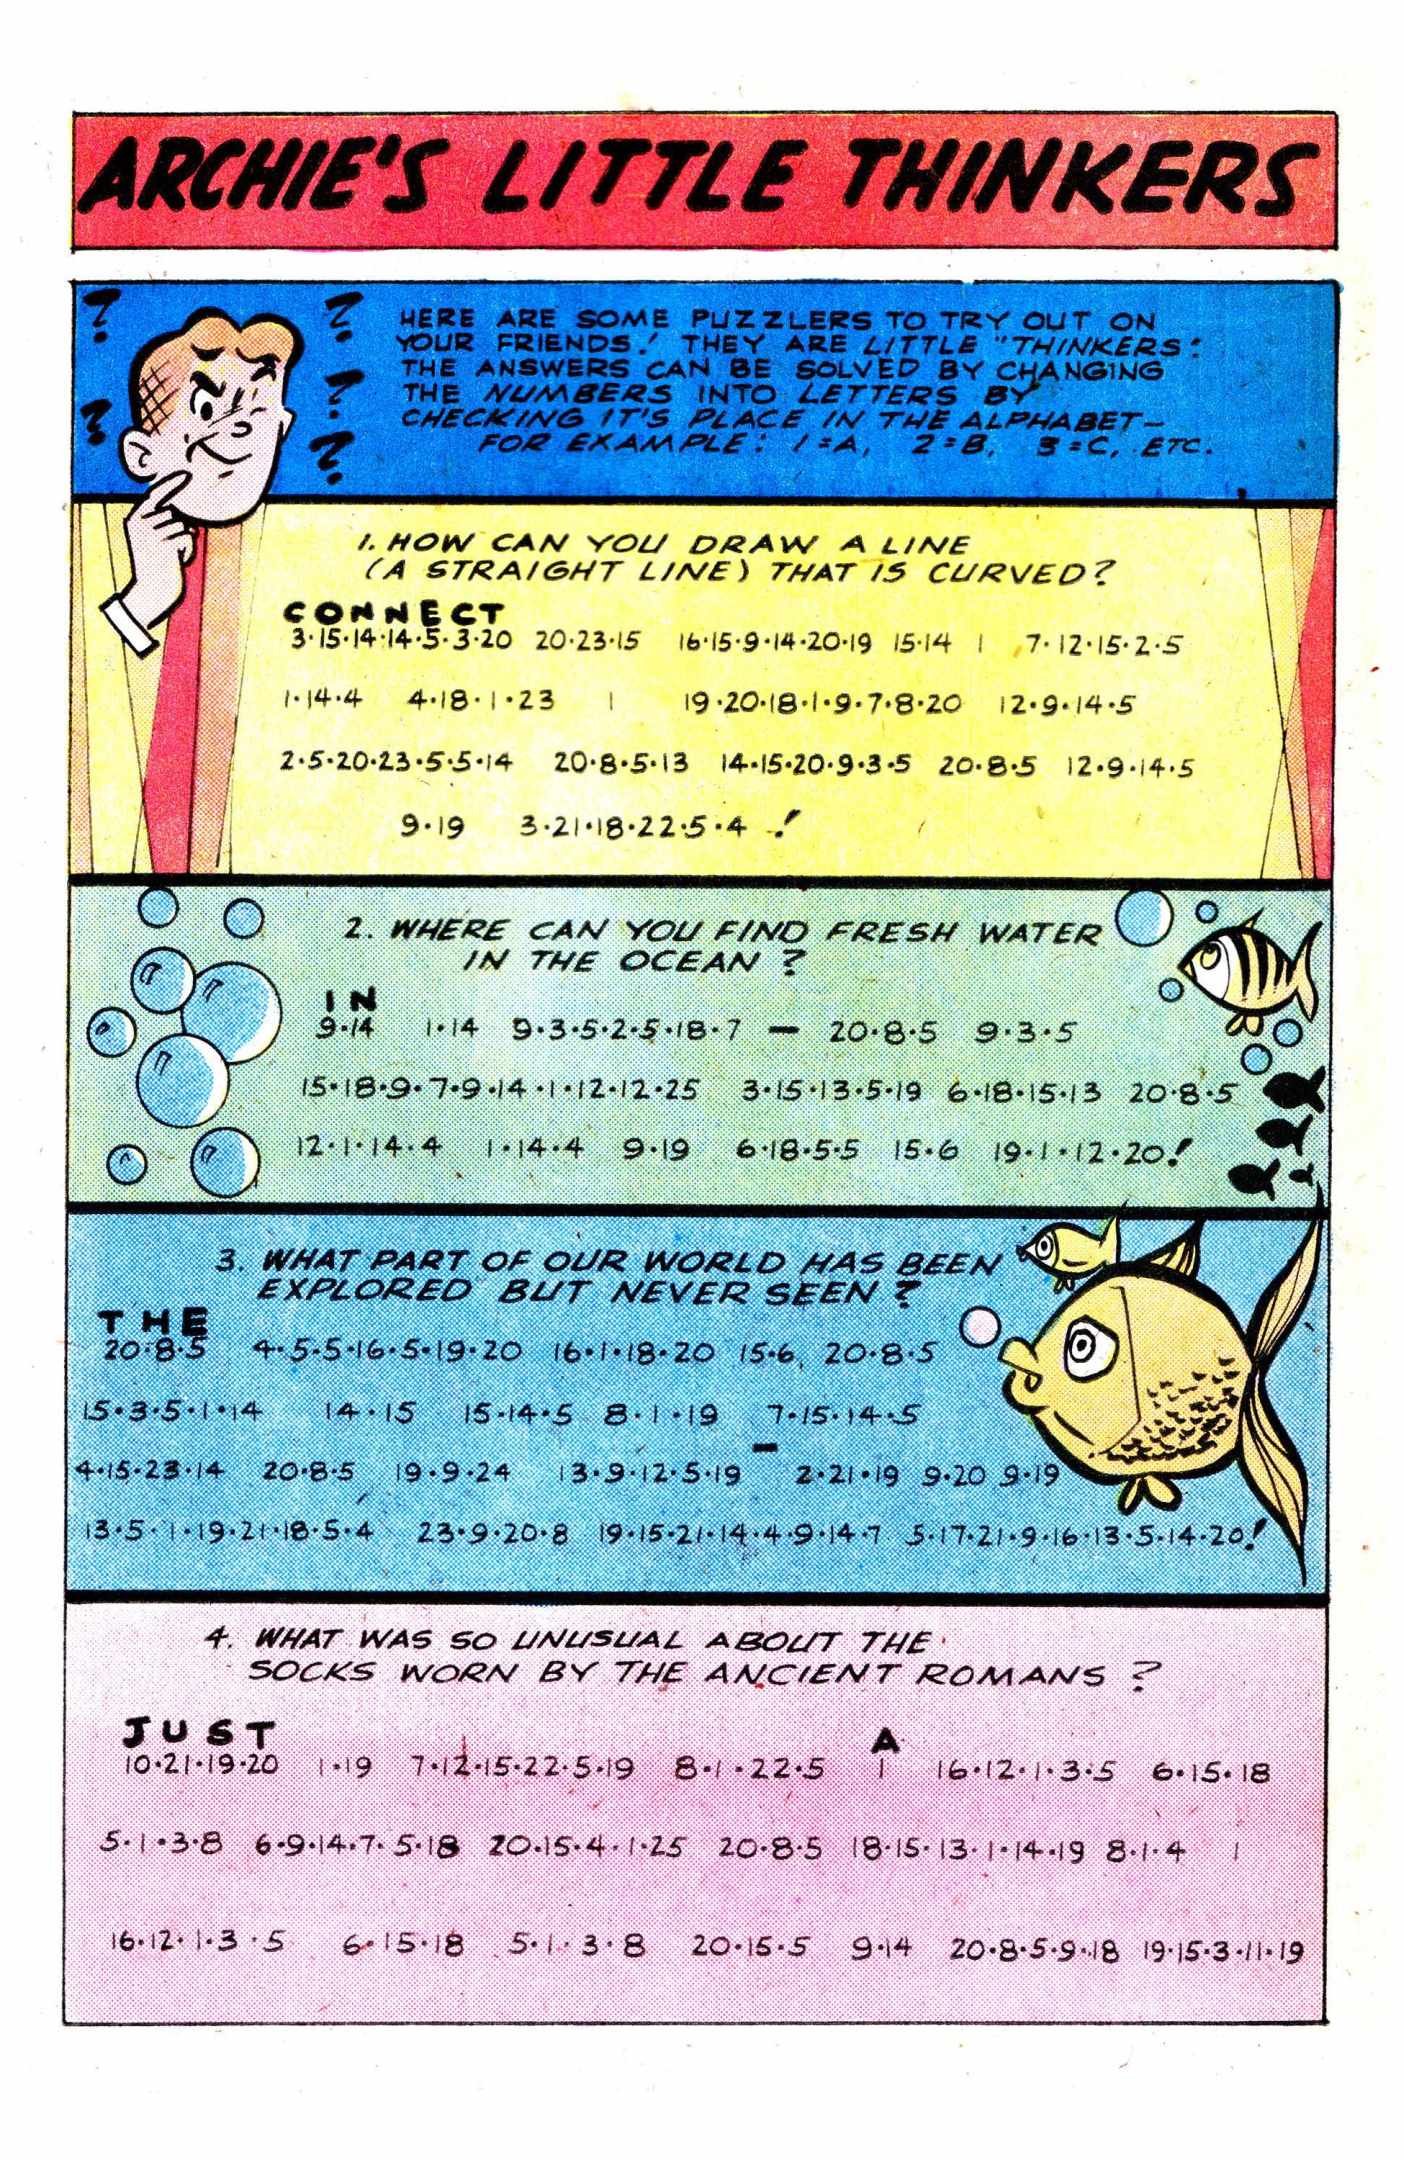 ARCHIE'S LITTLE THINKERS
HERE ARE SOME PUZZLERS TO TRY OUT ON
YOUR FRIENDS! THEY ARE LITTLE "THINKERS".
THE ANSWERS CAN BE SOLVED BY CHANGING
THE NUMBERS INTO LETTERS BY
CHECKING IT'S PLACE IN THE ALPHABET—
FOR EXAMPLE: 1=A, 2=B, 3=C, ETC.
1. HOW CAN YOU DRAW A LINE
(A STRAIGHT LINE) THAT IS CURVED?
CONNECT
3·15·14·14·5·3·20 20·23·15 16·15·9·14·20·19 15·14 1 7·12·15·2·5
1·14·4 4·18·1·23 1 19·20·18·1·9·7·8·20 12·9·14·5
2·5·20·23·5·5·14 20·8·5·13 14·15·20·9·3·5 20·8·5 12·9·14·5
9·19 3·21·18·22·5·4 !
2. WHERE CAN YOU FIND FRESH WATER
IN THE OCEAN?
IN
9·14 1·14 9·3·5·2·5·18·7 — 20·8·5 9·3·5
15·18·9·7·9·14·1·12·12·25 3·15·13·5·19 6·18·15·13 20·8·5
12·1·14·4 1·14·4 9·19 6·18·5·5 15·6 19·1·12·20!
3. WHAT PART OF OUR WORLD HAS BEEN
EXPLORED BUT NEVER SEEN?
THE
20·8·5 4·5·5·16·5·19·20 16·1·18·20 15·6, 20·8·5
15·3·5·1·14 14·15 15·14·5 8·1·19 7·15·14·5
4·15·23·14 20·8·5 19·9·24 13·9·12·5·19 — 2·21·19 9·20 9·19
13·5·1·19·21·18·5·4 23·9·20·8 19·15·21·14·4·9·14·7 5·17·21·9·16·13·5·14·20!
4. WHAT WAS SO UNUSUAL ABOUT THE
SOCKS WORN BY THE ANCIENT ROMANS?
JUST A
10·21·19·20 1·19 7·12·15·22·5·19 8·1·22·5 1 16·12·1·3·5 6·15·18
5·1·3·8 6·9·14·7·5·18 20·15·4·1·25 20·8·5 18·15·13·1·14·19 8·1·4 1
16·12·1·3·5 6·15·18 5·1·3·8 20·15·5 9·14 20·8·5·9·18 19·15·3·11·19